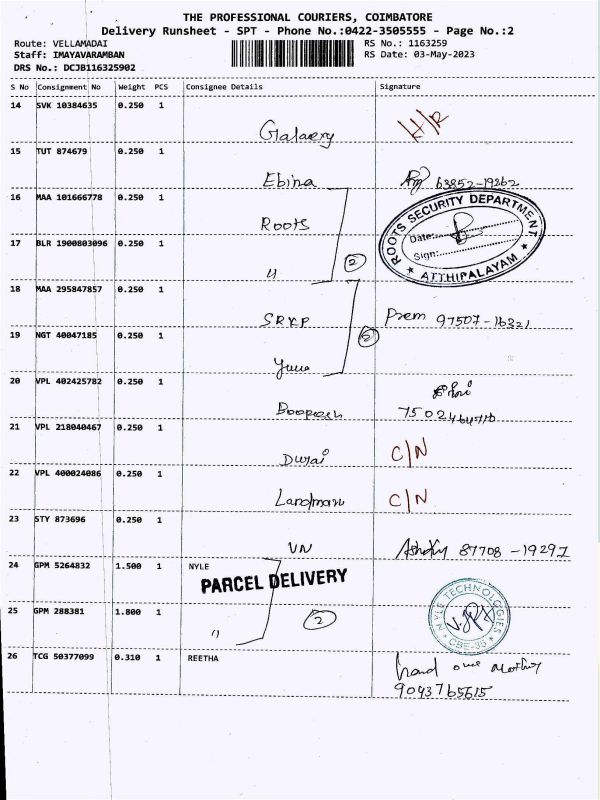 THE PROFESSIONAL COURIERS, COIMBATORE
Delivery Runsheet - SPT - Phone No.:0422-3505555 - Page No.:2
Route: VELLAMADAI
RS No.: 1163259
Staff: IMAYAVARAMBAN
RS Date: 03-May-2023
DRS No.: DCJB116325902
S No Consignment No Weight PCS Consignee Details Signature
14 SVK 10384635 0.250 1
H/R
15 TUT 874679 0.250 1
Ebina 63852-19262
16 MAA 101666778 0.250 1
Roots
ROOTS SECURITY DEPARTMENT
Date:
Sign:
ATTHIPALAYAM
17 BLR 1900803096 0.250 1
〃 2
18 MAA 295847857 0.250 1
SRKP Prem 97507-16321
19 NGT 40047185 0.250 1
20 VPL 402425782 0.250 1
21 VPL 218040467 0.250 1
Durai C/N
22 VPL 400024086 0.250 1
Landmark C/N
23 STY 873696 0.250 1
VN 87708-19297
24 GPM 5264832 1.500 1 NYLE
PARCEL DELIVERY
25 GPM 288381 1.800 1
〃 2
NYLE TECHNOLOGIES
CBE-35
26 TCG 50377099 0.310 1 REETHA
9043765615